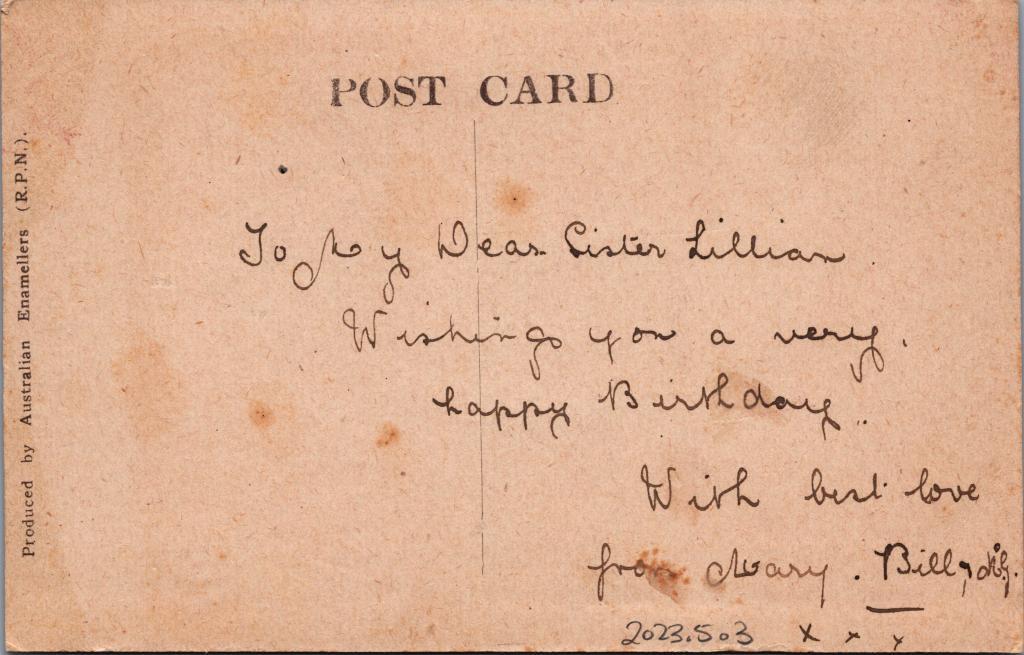 POST CARD
Produced by Australian Enamellers (R.P.N.).
To My Dear Sister Lillian
Wishings you a very.
happy Birthday..
With best love
from Mary. Bill,
2023.503 x x x